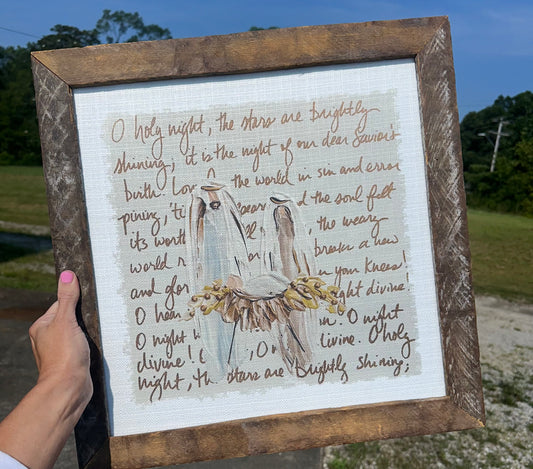 O holy night, the stars are brightly
shining, it is the night of our dear Savior's
birth. Long the world in sin and error
pining, 'til appear d the soul felt
its worth , the weary
world r breaks a new
and glor n your knees!
O hear night divine!
O night . O night
divine! O , O divine. O holy
night, the stars are brightly shining,